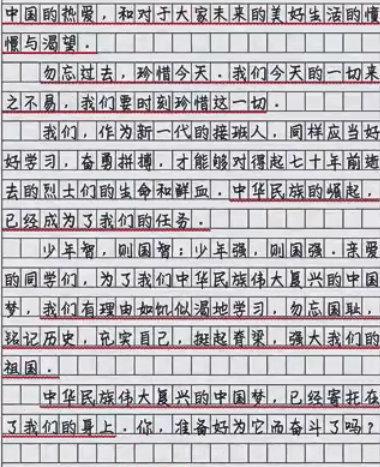 中国的热爱，和对于大家未来的美好生活的憧
憬与渴望．
勿忘过去，珍惜今天．我们今天的一切来
之不易，我们要时刻珍惜这一切．
我们，作为新一代的接班人，同样应当好
好学习，奋勇拼搏，才能够对得起七十年前逝
去的烈士们的生命和鲜血．中华民族的崛起，
已经成为了我们的任务．
少年智，则国智；少年强，则国强．亲爱
的同学们，为了我们中华民族伟大复兴的中国
梦，我们有理由如饥似渴地学习，勿忘国耻，
铭记历史，充实自己，挺起脊梁，强大我们的
祖国．
中华民族伟大复兴的中国梦，已经寄托在
了我们的身上．你，准备好为它而奋斗了吗？